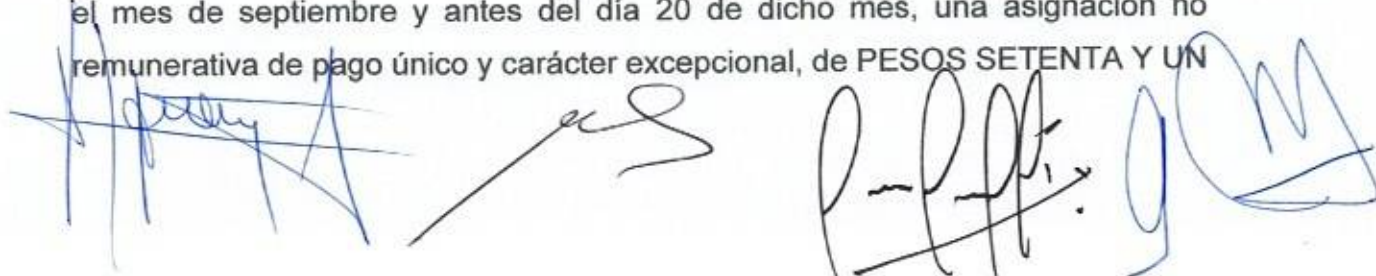 el mes de septiembre y antes del día 20 de dicho mes, una asignación no
remunerativa de pago único y carácter excepcional, de PESOS SETENTA Y UN